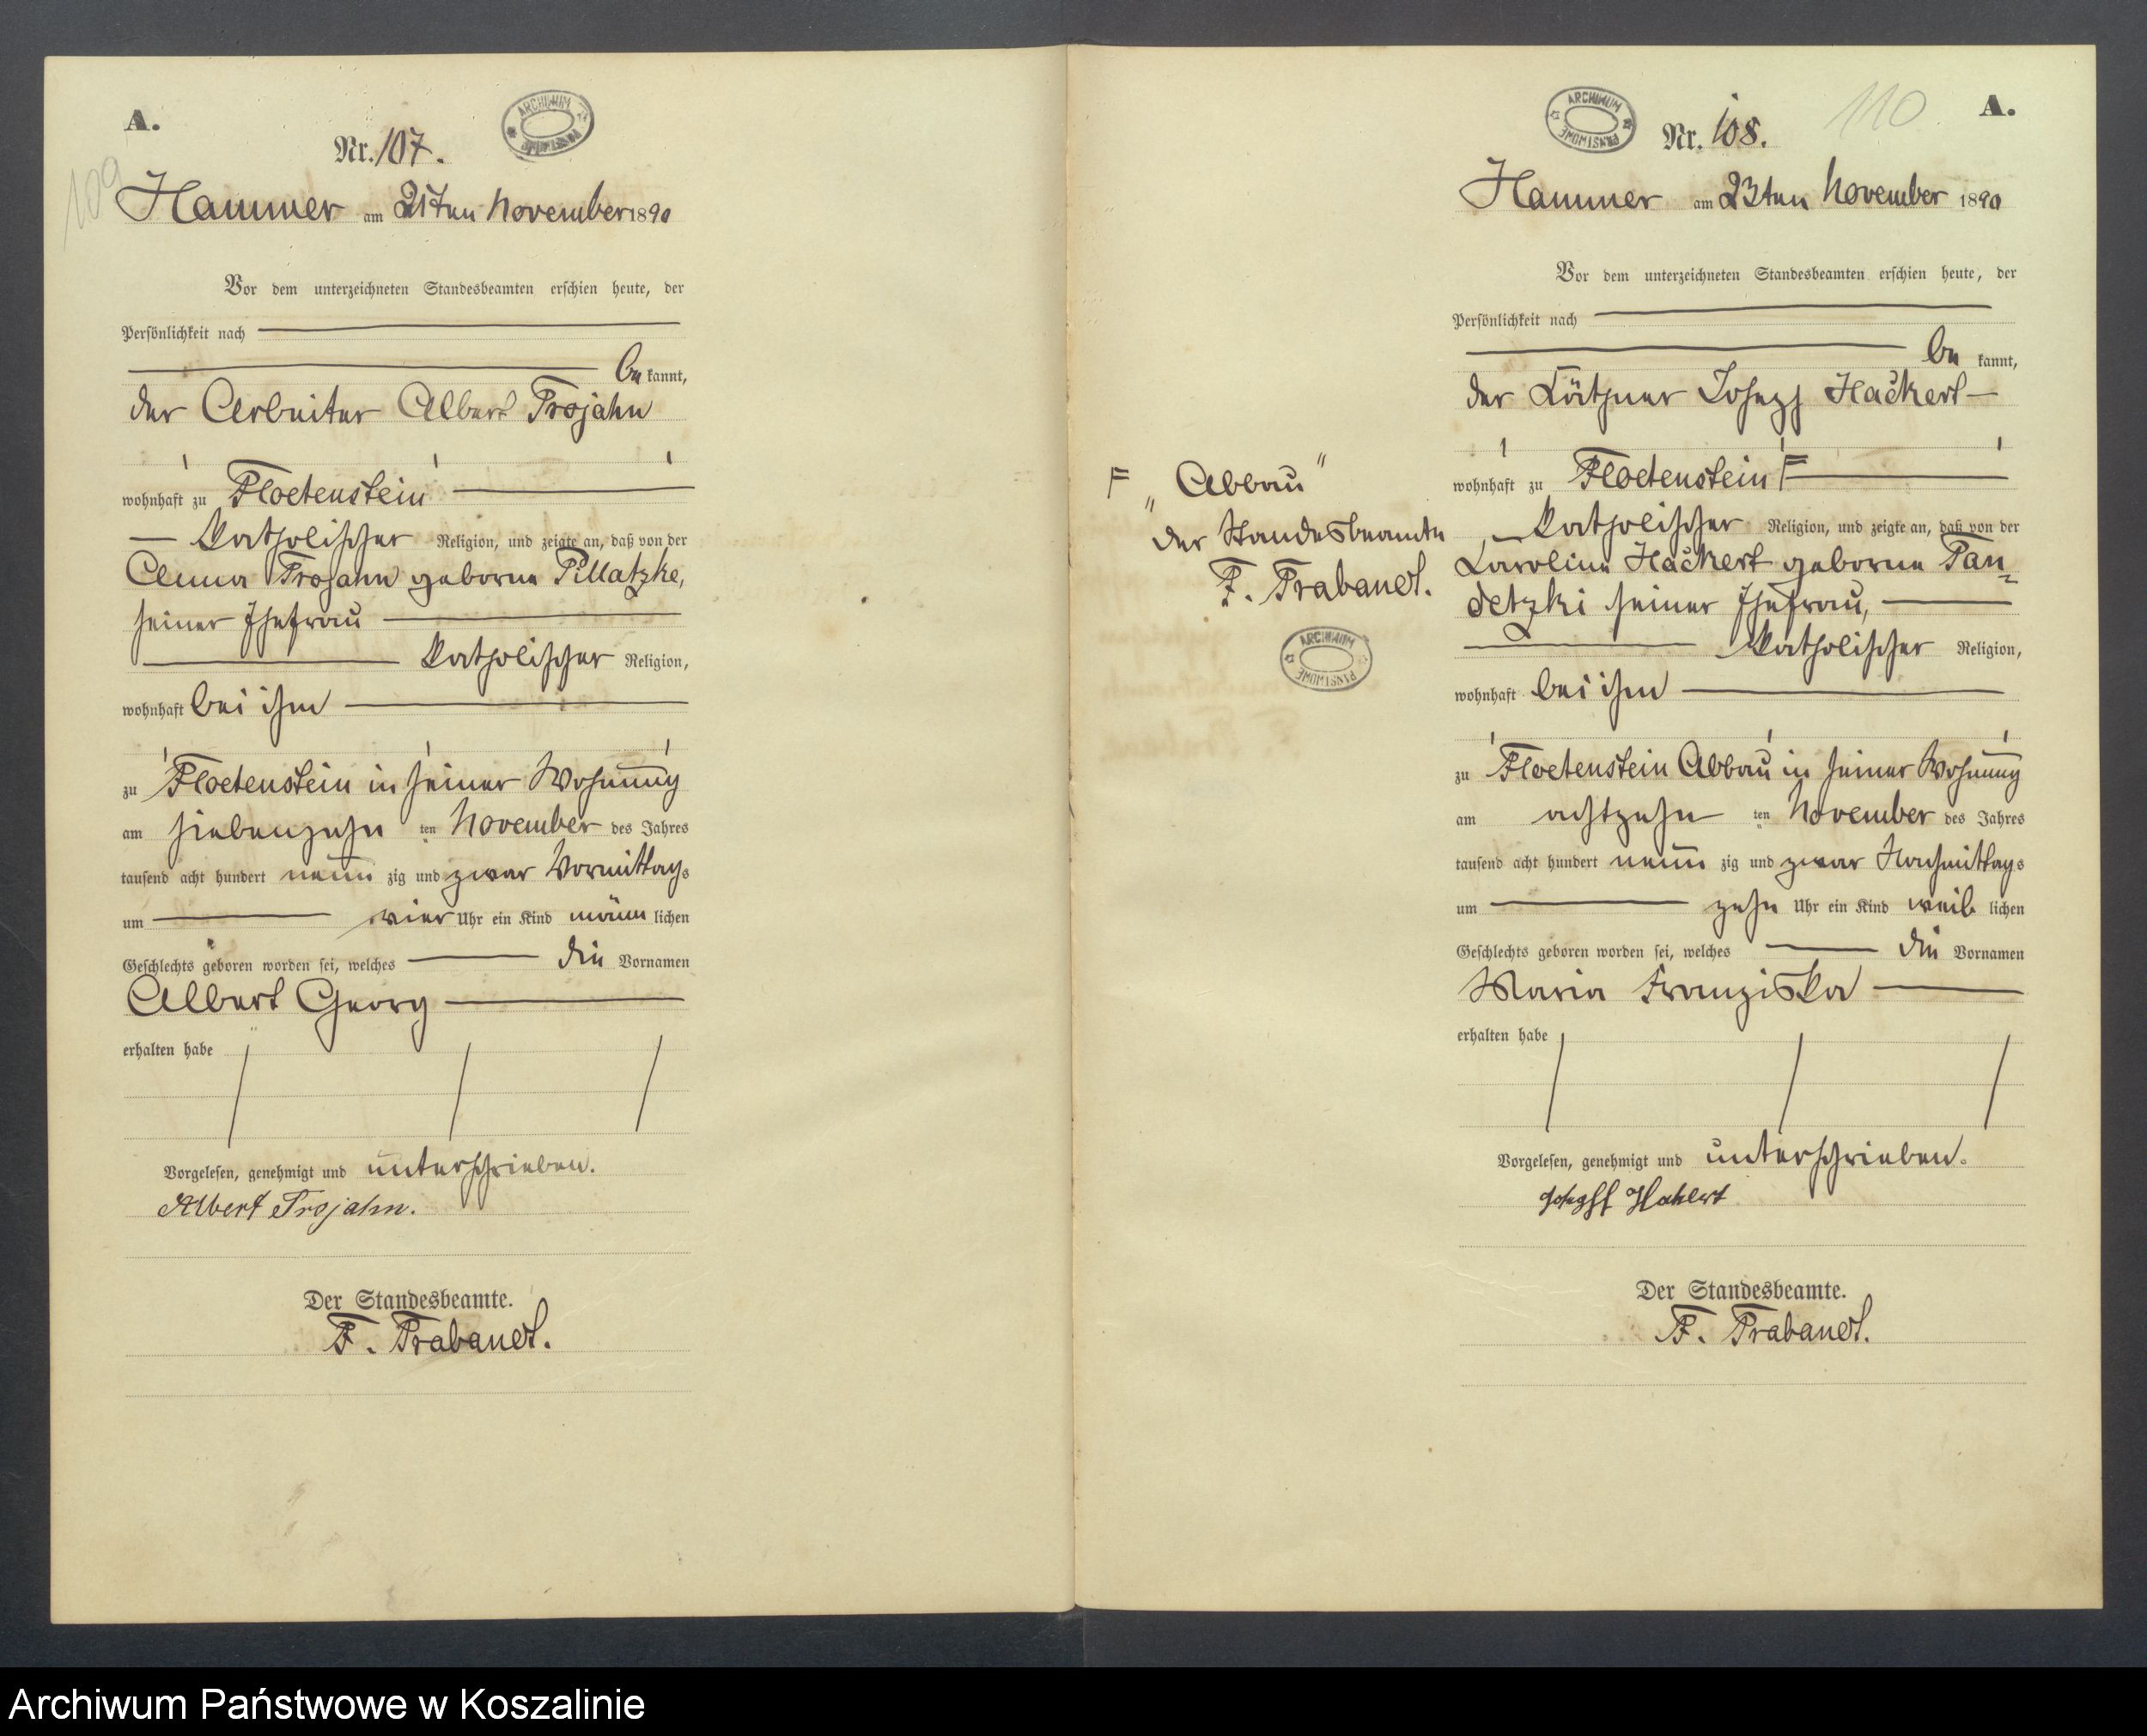 A.
Nr. 107.
ARCHIWUM PAŃSTWOWE
109
Hammer am 21ten November 1890
Vor dem unterzeichneten Standesbeamten erschien heute, der
Persönlichkeit nach
be kannt,
der Arbeiter Albert Trojahn
wohnhaft zu Floetenstein
katholischer Religion, und zeigte an, daß von der
Anna Trojahn geborne Pillatzke,
seiner Ehefrau
katholischer Religion,
wohnhaft bei ihm
zu Floetenstein in seiner Wohnung
am siebenzehn ten November des Jahres
tausend acht hundert neun zig und zwar Vormittags
um vier Uhr ein Kind männ lichen
Geschlechts geboren worden sei, welches die Vornamen
Albert Georg
erhalten habe
Vorgelesen, genehmigt und unterschrieben.
Albert Trojahn.
Der Standesbeamte.
F. Trabandt.
A.
110
Nr. 108.
ARCHIWUM PAŃSTWOWE
Hammer am 23ten November 1890
Vor dem unterzeichneten Standesbeamten erschien heute, der
Persönlichkeit nach
be kannt,
der Käthner Joseph Hackert
wohnhaft zu Floetenstein F
katholischer Religion, und zeigte an, daß von der
Karoline Hackert geborne Pan-
detzki seiner Ehefrau,
katholischer Religion,
wohnhaft bei ihm
zu Floetenstein Abbau in seiner Wohnung
am achtzehn ten November des Jahres
tausend acht hundert neun zig und zwar Nachmittags
um zehn Uhr ein Kind weib lichen
Geschlechts geboren worden sei, welches die Vornamen
Maria Franziska
erhalten habe
Vorgelesen, genehmigt und unterschrieben.
Joseph Hakert
Der Standesbeamte.
F. Trabandt.
F „Abbau"
Der Standesbeamte
F. Trabandt.
ARCHIWUM PAŃSTWOWE
Archiwum Państwowe w Koszalinie